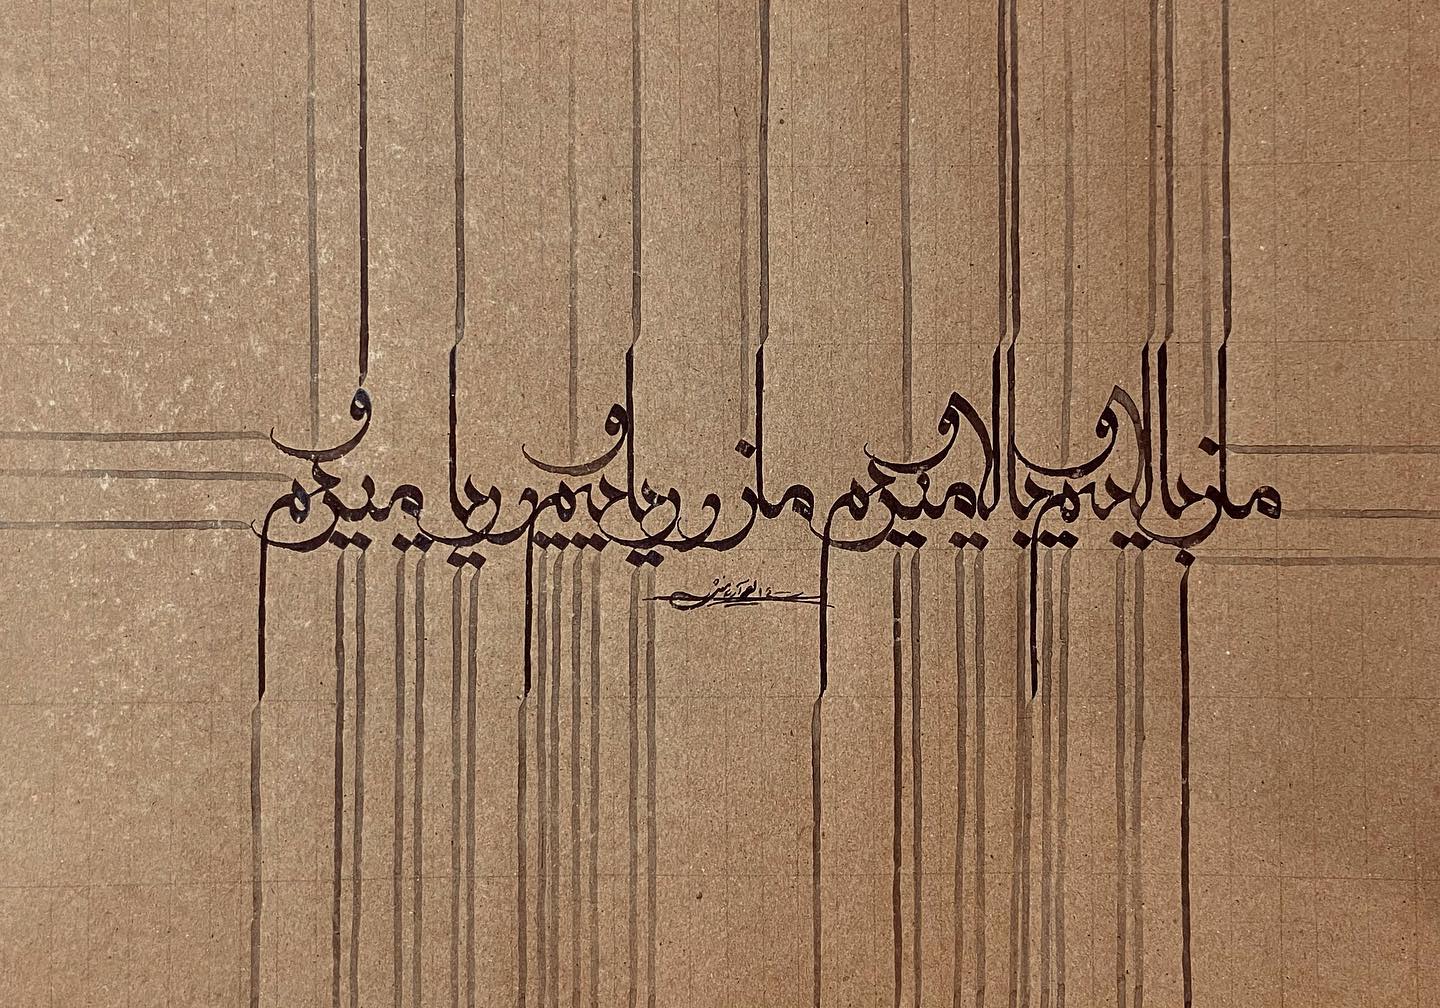 ما ز بالاییم و بالا میرویم
ما ز دریاییم و دریا میرویم